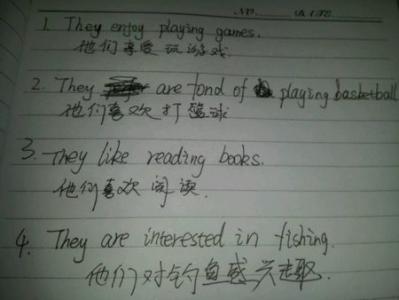 1. They enjoy playing games.
他们喜爱玩游戏.
2. They are fond of playing basketball
他们喜欢打篮球
3. They like reading books.
他们喜欢阅读.
4. They are interested in fishing.
他们对钓鱼感兴趣.